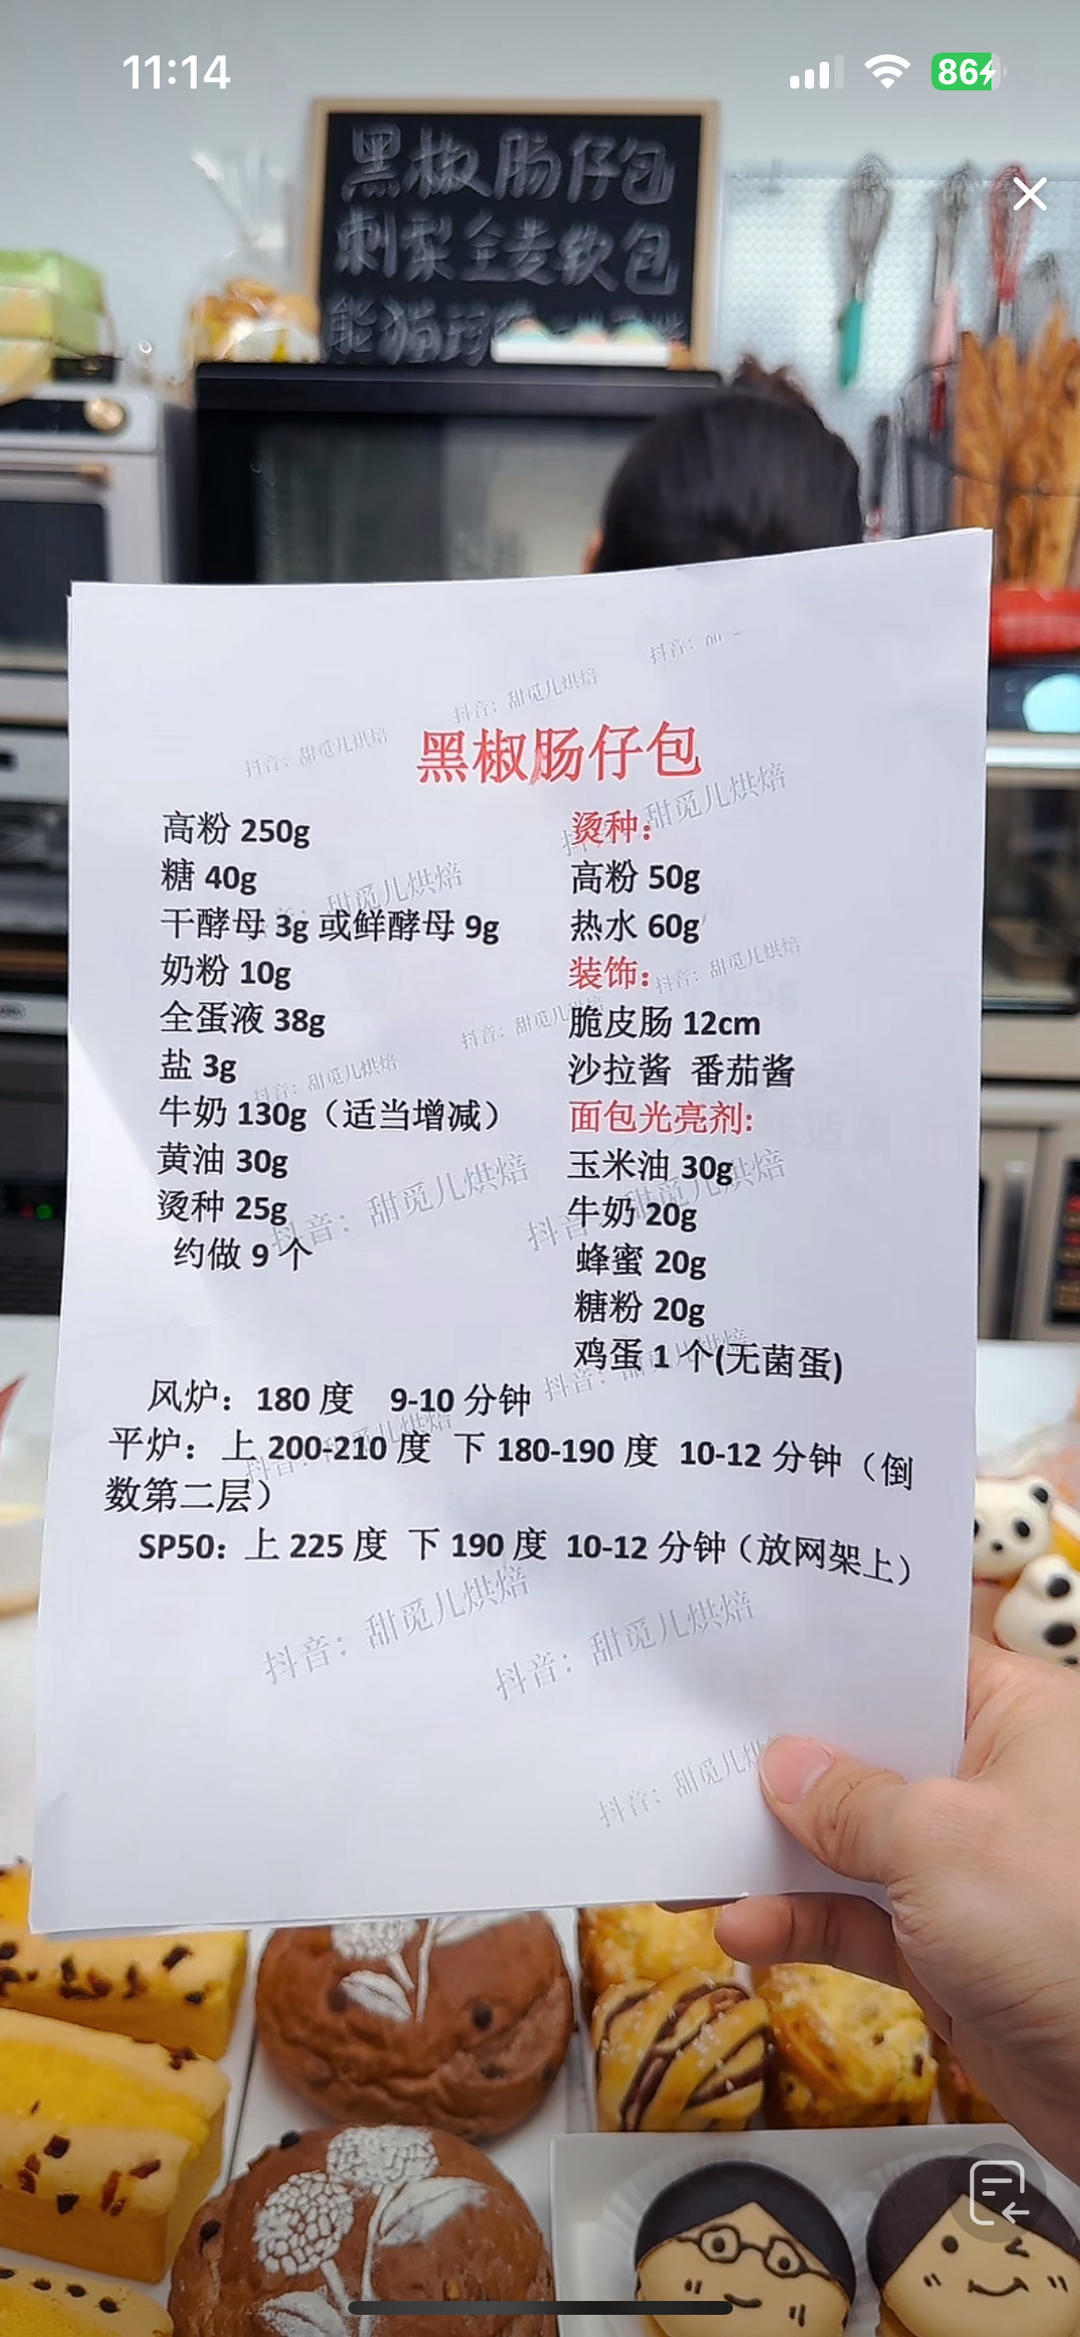 11:14
86
黑椒肠仔包
刺梨全麦软包
熊猫
抖音：甜觅儿烘焙
抖音：甜觅儿烘焙
抖音：
黑椒肠仔包
高粉 250g
糖 40g
干酵母 3g 或鲜酵母 9g
奶粉 10g
全蛋液 38g
盐 3g
牛奶 130g（适当增减）
黄油 30g
烫种 25g
约做 9 个
烫种：
高粉 50g
热水 60g
装饰：
脆皮肠 12cm
沙拉酱 番茄酱
面包光亮剂:
玉米油 30g
牛奶 20g
蜂蜜 20g
糖粉 20g
鸡蛋 1 个(无菌蛋)
风炉：180 度 9-10 分钟
平炉：上 200-210 度 下 180-190 度 10-12 分钟（倒
数第二层）
SP50：上 225 度 下 190 度 10-12 分钟（放网架上）
抖音：甜觅儿烘焙
抖音：甜觅儿烘焙
抖音：甜觅儿烘